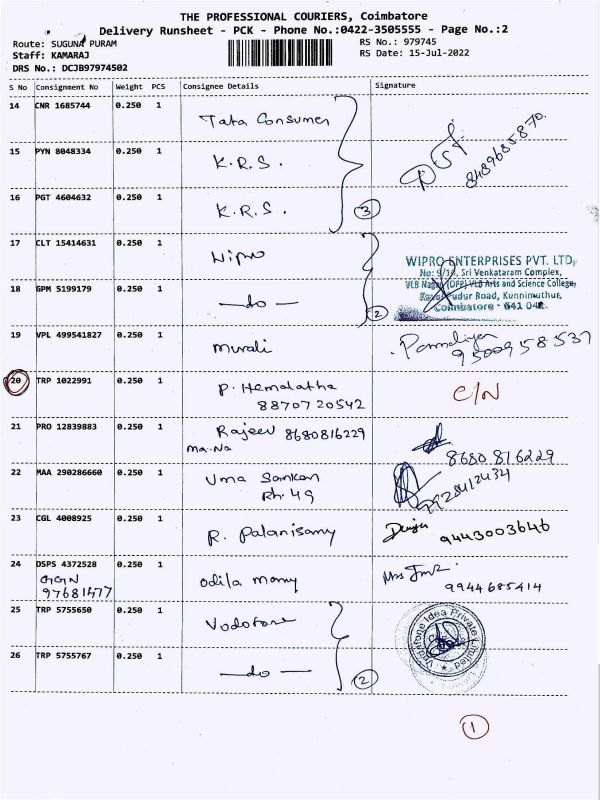 THE PROFESSIONAL COURIERS, Coimbatore
Delivery Runsheet - PCK - Phone No.:0422-3505555 - Page No.:2
Route: SUGUNA PURAM
RS No.: 979745
Staff: KAMARAJ
RS Date: 15-Jul-2022
DRS No.: DCJB97974502
S No Consignment No Weight PCS Consignee Details Signature
14 CNR 1685744 0.250 1 Tata Consumer
15 PYN 8048334 0.250 1 K.R.S. 8489685870.
16 PGT 4604632 0.250 1 K.R.S. 3
17 CLT 15414631 0.250 1 Wipro
WIPRO ENTERPRISES PVT. LTD,
No: 9/10, Sri Venkataram Complex,
VLB Nagar (OPP) VLB Arts and Science College,
Pudur Road, Kunnimuthur,
Coimbatore - 641 042.
18 GPM 5199179 0.250 1 — do — 2
19 VPL 499541827 0.250 1 murali 9500958537
20 TRP 1022991 0.250 1 P. Hemalatha C/N
8870720542
21 PRO 12839883 0.250 1 Rajeev 8680816229 8680816229
Ma.Na
22 MAA 290286660 0.250 1 Uma Sankar
Rh.49
23 CGL 4008925 0.250 1 R. Palanisamy 9443003646
24 DSPS 4372528 0.250 1 Odila mary 9944685414
GGN
97681477
25 TRP 5755650 0.250 1 Vodofone
Vodafone Idea Private Limited
26 TRP 5755767 0.250 1 — do — 2
1